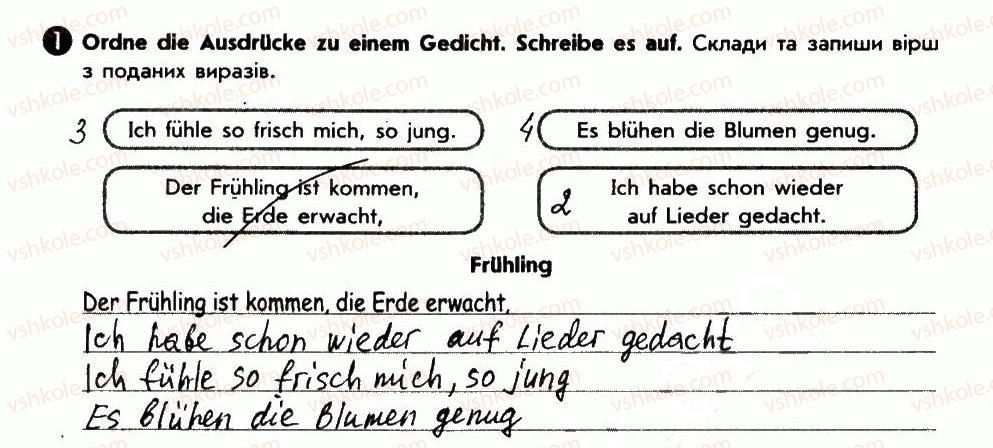 1 Ordne die Ausdrücke zu einem Gedicht. Schreibe es auf. Склади та запиши вірш
з поданих виразів.
3 Ich fühle so frisch mich, so jung.
4 Es blühen die Blumen genug.
Der Frühling ist kommen,
die Erde erwacht,
2 Ich habe schon wieder
auf Lieder gedacht.
Frühling
Der Frühling ist kommen, die Erde erwacht,
Ich habe schon wieder auf Lieder gedacht
Ich fühle so frisch mich, so jung
Es blühen die Blumen genug
vshkole.com